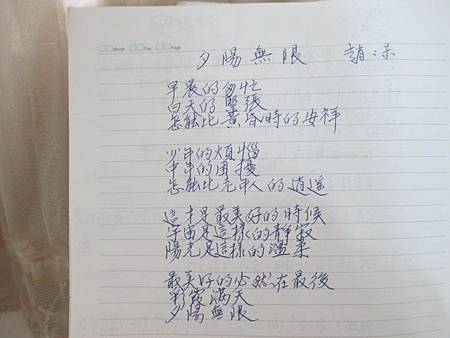 Month Day Page
夕陽無限 趙沨
早晨的匆忙
白天的緊張
怎能比黃昏時的安祥
少年的煩惱
中年的困擾
怎能比老年人的逍遥
這才是最美好的時候
宇宙是這樣的靜寂
陽光是這樣的溫柔
最美好的必然在最後
彩霞滿天
夕陽無限